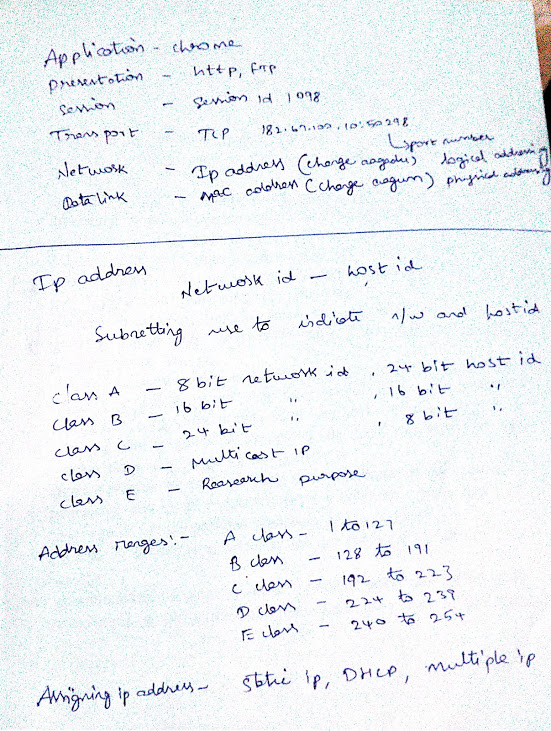 Application - chrome
presentation - http, FTP
session - session id 1098
Transport - TCP 182.67.100.10:50298
port number
Network - Ip address (change aagadu) logical addressing
Data link - Mac address (change aagum) physical addressing
Ip address
Network id - host id
Subnetting use to indicate n/w and hostid
class A - 8 bit network id , 24 bit host id
class B - 16 bit " , 16 bit "
class C - 24 bit " , 8 bit "
class D - Multicast IP
class E - Reasearch purpose
Address ranges:- A class - 1 to 127
B class - 128 to 191
C class - 192 to 223
D class - 224 to 239
E class - 240 to 254
Assigning ip address - static ip, DHCP, multiple ip